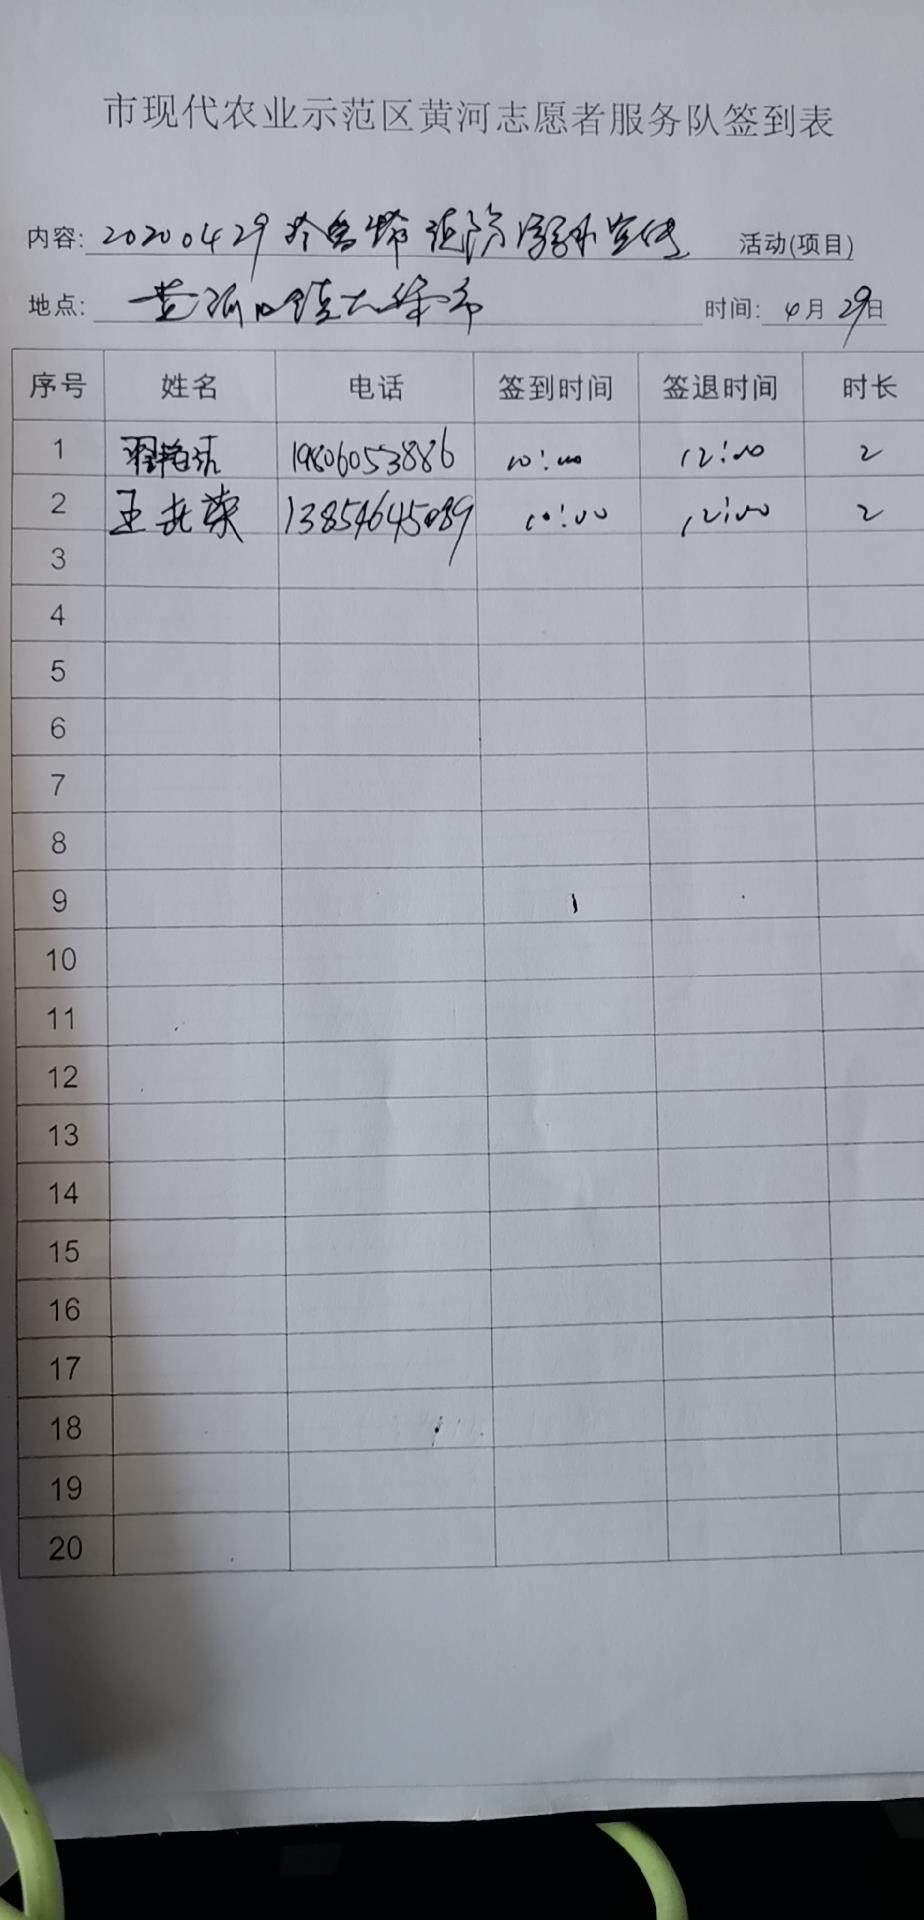 市现代农业示范区黄河志愿者服务队签到表
内容: 20200429 宣传 活动(项目)
地点: 黄河口镇 时间: 4月29日
序号 姓名 电话 签到时间 签退时间 时长
1 19806053886 10:00 12:00 2
2 王 荣 13854645089 10:00 12:00 2
3
4
5
6
7
8
9
10
11
12
13
14
15
16
17
18
19
20